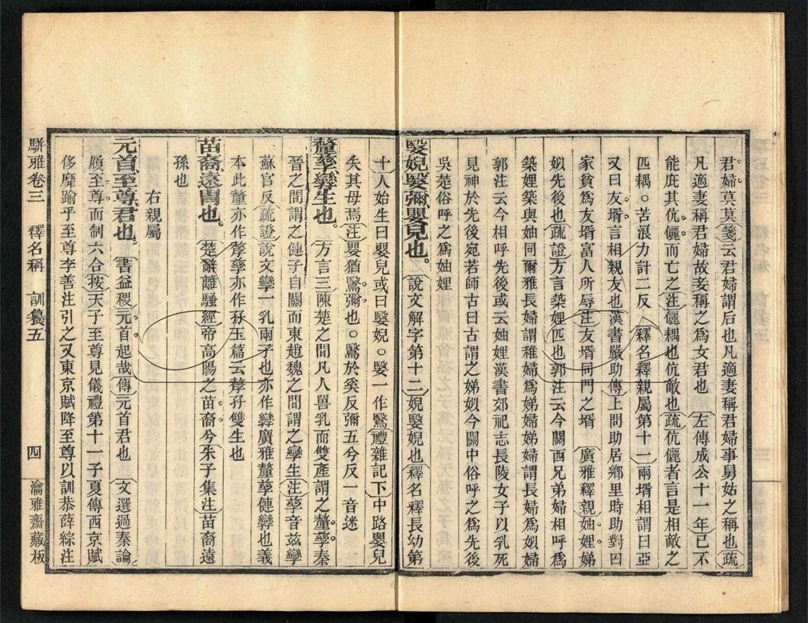 君婦莫莫箋云君婦謂后也凡適妻稱君婦事舅姑之稱也疏
凡適妻稱君婦故妾稱之爲女君也　左傳成公十一年已不
能庇其伉儷而亡之注儷耦也伉敵也疏伉儷者言是相敵之
匹耦。苦浪力計二反　釋名釋親屬第十一兩壻相謂曰亞
又曰友壻言相親友也漢書嚴助傳上問助居鄉里時助對曰
家貧爲友壻富人所辱注友壻同門之壻　廣雅釋親妯娌娣
姒先後也疏證方言築娌匹也郭注云今關西兄弟婦相呼爲
築娌築與妯同爾雅長婦謂稚婦爲娣婦娣婦謂長婦爲姒婦
郭注云今相呼先後或云妯娌漢書郊祀志長陵女子以乳死
見神於先後宛若師古曰古謂之娣姒今關中俗呼之爲先後
吳楚俗呼之爲妯娌
嫛婗嫛彌嬰兒也。說文解字第十二婗嫛婗也釋名釋長幼第
十人始生曰嬰兒或曰嫛婗。嫛一作鷖禮雜記下中路嬰兒
失其母焉注嬰猶鷖彌也。鷖於奚反彌五兮反一音迷
釐孳孿生也。方言三陳楚之間凡人嘼乳而雙產謂之釐孳秦
晉之間謂之僆子自關而東趙魏之間謂之孿生注孳音茲孿
蘇官反疏證說文孿一乳兩子也亦作㝈廣雅釐孳僆孿也義
本此釐亦作孷孳亦作孖玉篇云孷孖雙生也
苗裔遠胄也。楚辭離騷經帝高陽之苗裔兮朱子集注苗裔遠
孫也
右親屬
元首至尊君也。書益稷元首起哉傳元首君也　文選過秦論
履至尊而制六合按天子至尊見儀禮第十一子夏傳西京賦
侈靡踰乎至尊李善注引之又東京賦降至尊以訓恭薛綜注
駢雅卷三　釋名稱　訓纂五　四　瀹雅齋藏板